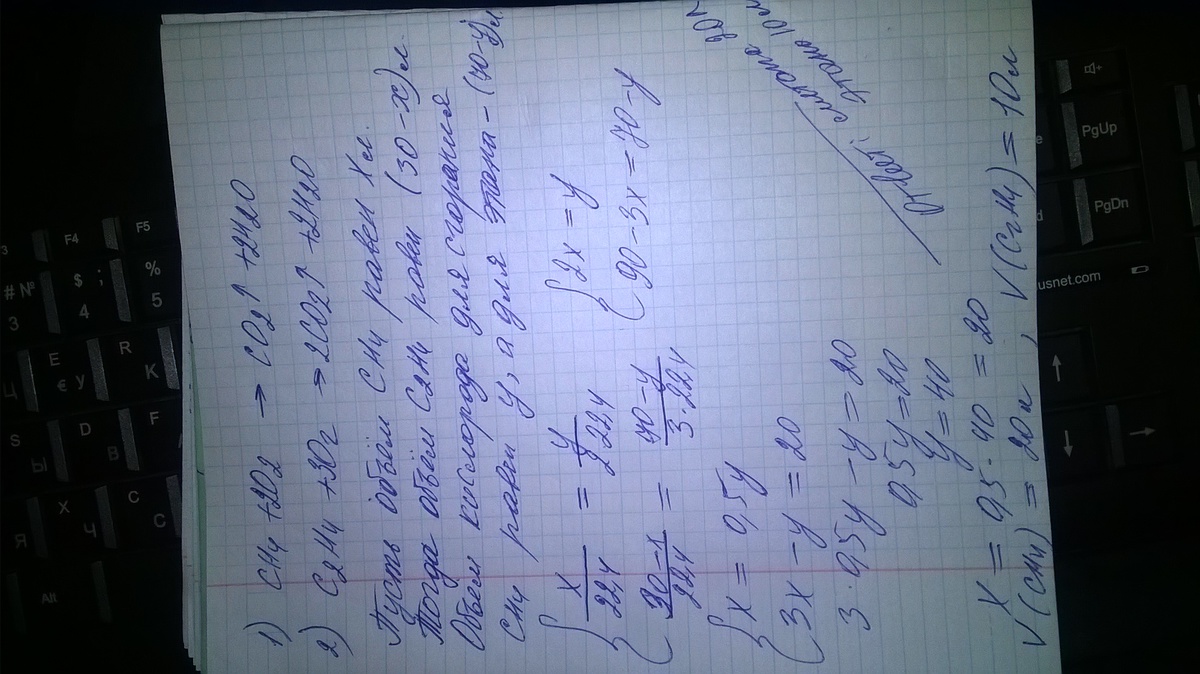 1) CH4 + 2O2 → CO2↑ + 2H2O
2) C2H4 + 3O2 → 2CO2↑ + 2H2O
Пусть объём CH4 равен X л.
Тогда объём C2H4 равен (30 - x) л.
Объём кислорода для сгорания
CH4 равен y, а для этана - (70-y) л
{ x/22,4 = y/2·22,4
{ 30-x/22,4 = 70-y/3·22,4
{ 2x = y
{ 90 - 3x = 70 - y
{ x = 0,5y
{ 3x - y = 20
3·0,5y - y = 20
0,5y = 20
y = 40
x = 0,5·40 = 20
V(CH4) = 20л, V(C2H4) = 10л
Ответ: метана 20л
этана 10л
F4
F5
# № 3
$ ; 4
% 5
E У €
R К
Ц
S Ы
D В
F
Я
X Ч
C С
Alt
PgUp
PgDn
usnet.com